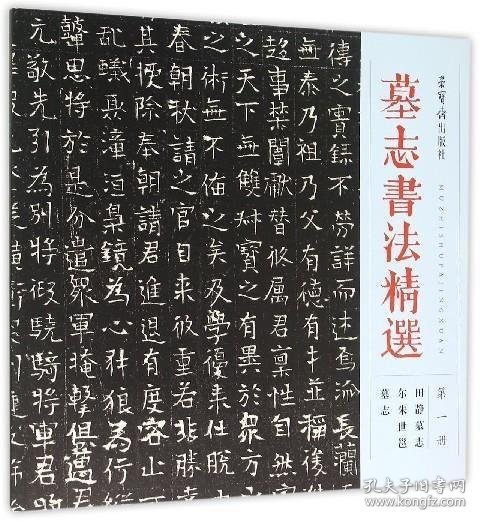 荣宝斋出版社
墓志書法精選
MUZHISHUFAJINGXUAN
第一册
田静墓志
尔朱世邕
墓志
傳之實録不勞詳而述焉派長瀾
無泰乃祖乃父有德有牛並稱後
趍事榮閶歇替攸属君禀性自然
之天下無雙母寶之有異於衆方
術無不侑之矣及學優来仕脱
春朝秋請之官自来攸重若勝
其授除奉朝請君進退有度容止
亂蟻臭潼洹梟鏡為心犲狼為行
韡思將於是分遣衆軍掩擊俱邁
元敬先引為別將假驍騎將軍君
孔夫子旧书网
www.kongfz.com